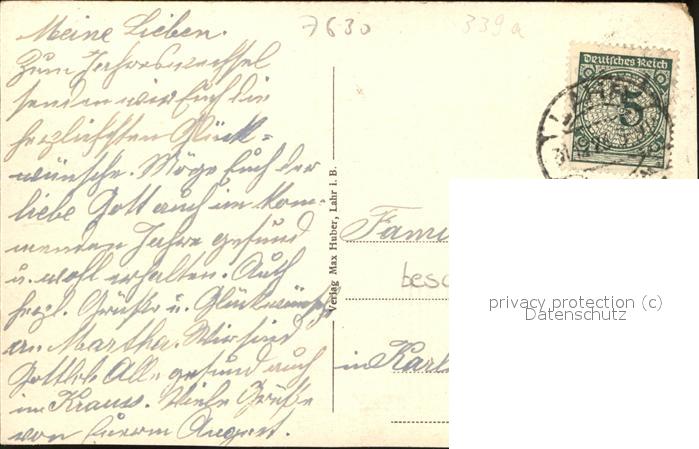 Meine Lieben.
7630
339a
Zum Jahreswechsel
senden wir Euch die
herzlichsten Glück-
wünsche. Möge Euch der
liebe Gott auch im kom-
menden Jahre gesund
u. wohl erhalten. Auch
herzl. Grüße u. Glückwünsche
an Martha. Wir sind
Gottlob Alle gesund auch
im Krauss. Viele Grüße
von Euerm August.
Verlag Max Huber, Lahr i. B.
Deutsches Reich
5
LAHR
Fami
besc
in Karl
privacy protection (c)
Datenschutz